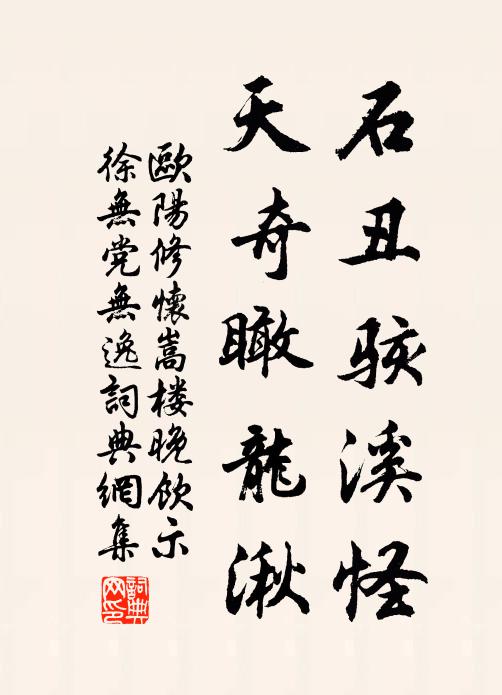 石丑骇溪怪
天奇瞰龍湫
歐陽修懷嵩楼晚飲示
徐無党無逸詞典網集
詞典网印